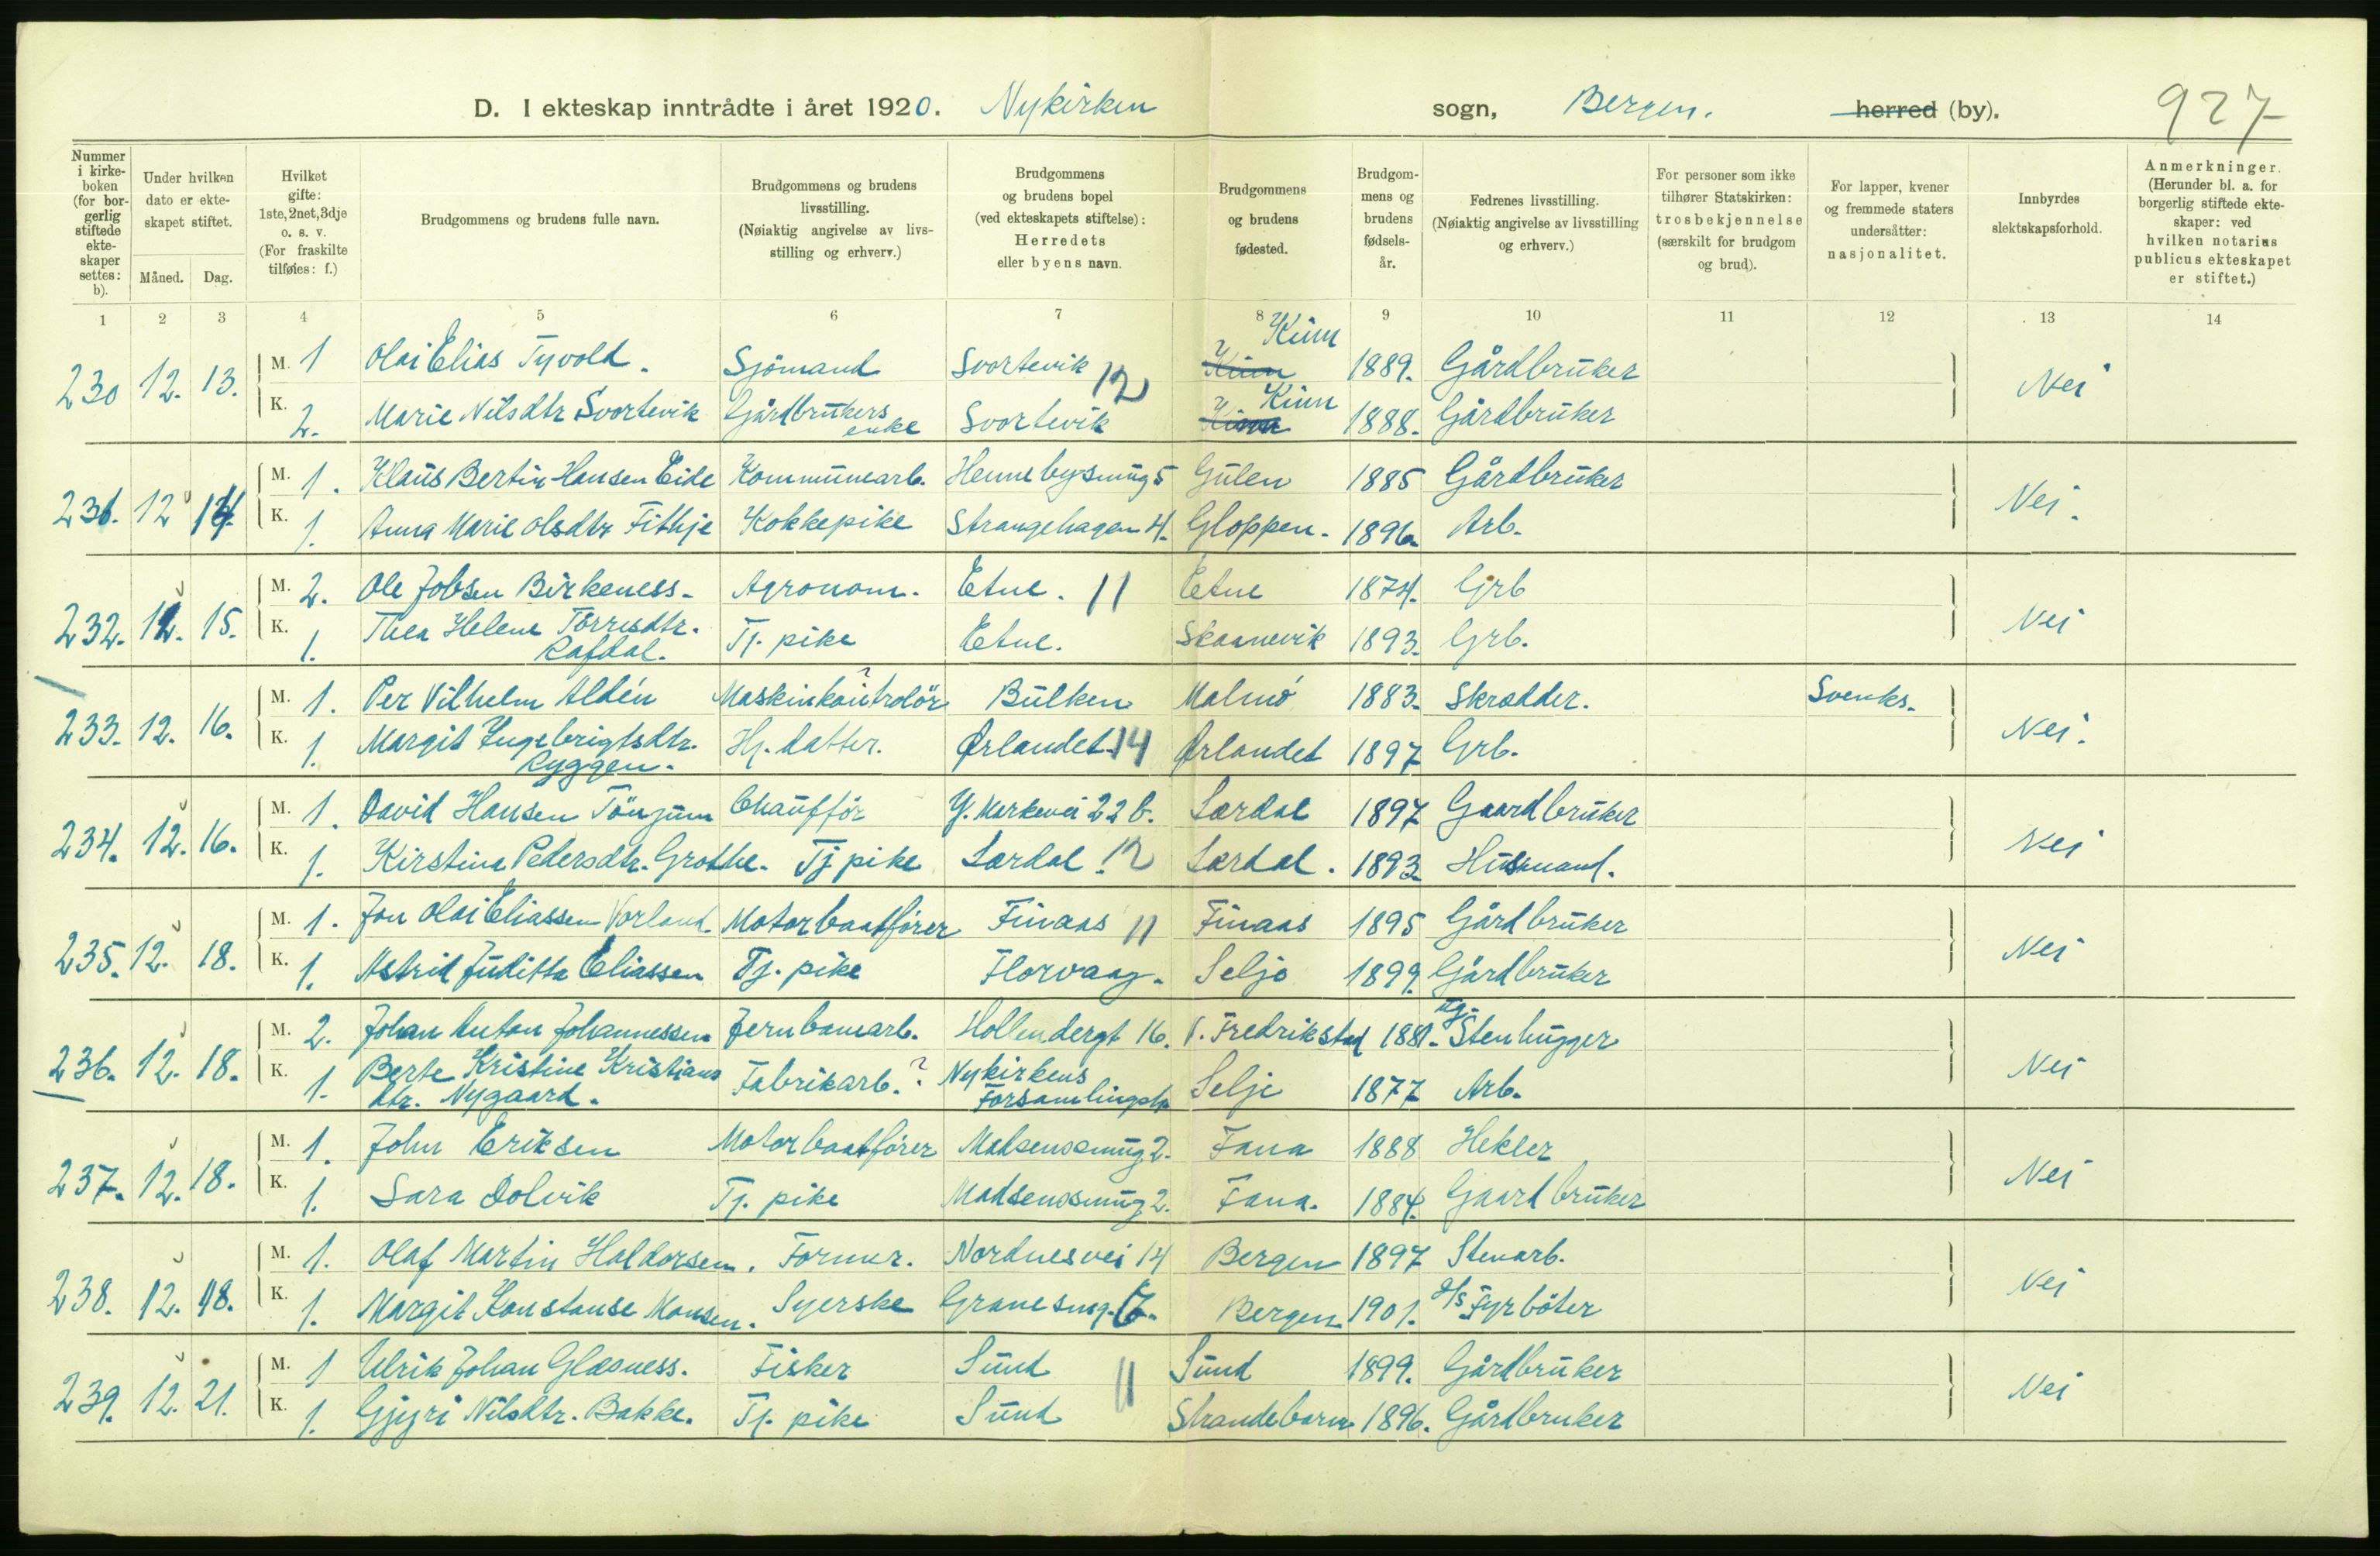 D. I ekteskap inntrådte i året 1920. Nykirken sogn, Bergen. herred (by). 927
Nummer i kirkeboken (for borgerlig stiftede ekteskaper settes: b).
Under hvilken dato er ekteskapet stiftet.
Måned. Dag.
Hvilket gifte: 1ste, 2net, 3dje o. s. v. (For fraskilte tilføies: f.)
Brudgommens og brudens fulle navn.
Brudgommens og brudens livsstilling. (Nøiaktig angivelse av livsstilling og erhverv.)
Brudgommens og brudens bopel (ved ekteskapets stiftelse): Herredets eller byens navn.
Brudgommens og brudens fødested.
Brudgommens og brudens fødselsår.
Fedrenes livsstilling. (Nøiaktig angivelse av livsstilling og erhverv.)
For personer som ikke tilhører Statskirken: trosbekjennelse (særskilt for brudgom og brud).
For lapper, kvener og fremmede staters undersåtter: nasjonalitet.
Innbyrdes slektskapsforhold.
Anmerkninger. (Herunder bl. a. for borgerlig stiftede ekteskaper: ved hvilken notarius publicus ekteskapet er stiftet.)
1 2 3 4 5 6 7 8 9 10 11 12 13 14
230 12. 13. M. 1 Olai Elias Tyvold. Sjömand Svortevik 12 Kinn 1889. Gårdbruker Nei
K. 2. Marie Nilsdtr Svortevik Gårdbrukers enke Svortevik Kinn 1888. Gårdbruker
231. 12 14. M. 1. Klaus Bertin Hansen Eide Kommunearb. Hennebysmug 5 Gulen 1885 Gårdbruker Nei.
K. 1. Anna Marie Olsdtr Fithje Kokkepike Strangehagen 4. Gloppen. 1896. Arb.
232. 12. 15. M. 2. Ole Jobsen Birkeness. Agronom. Etne. 11 Etne 1874. Grb Nei
K. 1. Thea Helene Törresdtr. Rafdal. Tj. pike Etne. Skaanevik 1893. Grb.
233. 12. 16. M. 1. Per Vilhelm Aldén Maskinkontrolör ? Bulken Malmö 1883. Skrædder. Svensk. Nei.
K. 1. Margit Ingebrigtsdtr. Ryggen. Hj. datter. Ørlandet 14 Ørlandet 1897 Grb.
234. 12. 16. M. 1. David Hansen Tönjum Chauffør Y. Markevei 22 b. Lærdal 1897 Gaardbruker Nei
K. 1. Kirstina Pedersdtr. Grothe. Tj pike Lærdal. 12 Lærdal. 1893 Husmand.
235. 12. 18. M. 1. Jon Olai Eliassen Vorland. Motorbaatfører Finaas 11 Finaas 1895 Gårdbruker Nei
K. 1. Astrid Juditta Eliassen Tj. pike Florvaag. Seljo 1899. Gårdbruker
236. 12. 18. M. 2. Johan Anton Johannessen Jernbanearb. Hollendergt 16. V. Fredrikstad 1881. Stenhugger Nei
K. 1. Berte Kristine Kristiansdtr. Nygaard. Fabrikarb. ? Nykirkens Forsamlingsh Selje 1877 Arb.
237. 12. 18. M. 1. John Eriksen Motorbaatfører Madsenssmug 2. Fana 1888 Hekler Nei
K. 1. Sara Dolvik Tj. pike Madsenssmug 2. Fana. 1884. Gaardbruker
238. 12. 18. M. 1. Olaf Martin Haldorsen. Former. Nordnesvei 14 Bergen 1897 Stenarb. Nei
K. 1. Margit Konstanse Monsen. Syerske Granesmg. 6. Bergen 1901. d/s Fyrböter
239. 12. 21. M. 1 Ulrik Johan Glæsness. Fisker Sund 11 Sund 1899. Gårdbruker Nei
K. 1. Gjyri Nilsdtr. Bakke. Tj. pike Sund Strandebarm 1896. Gårdbruker